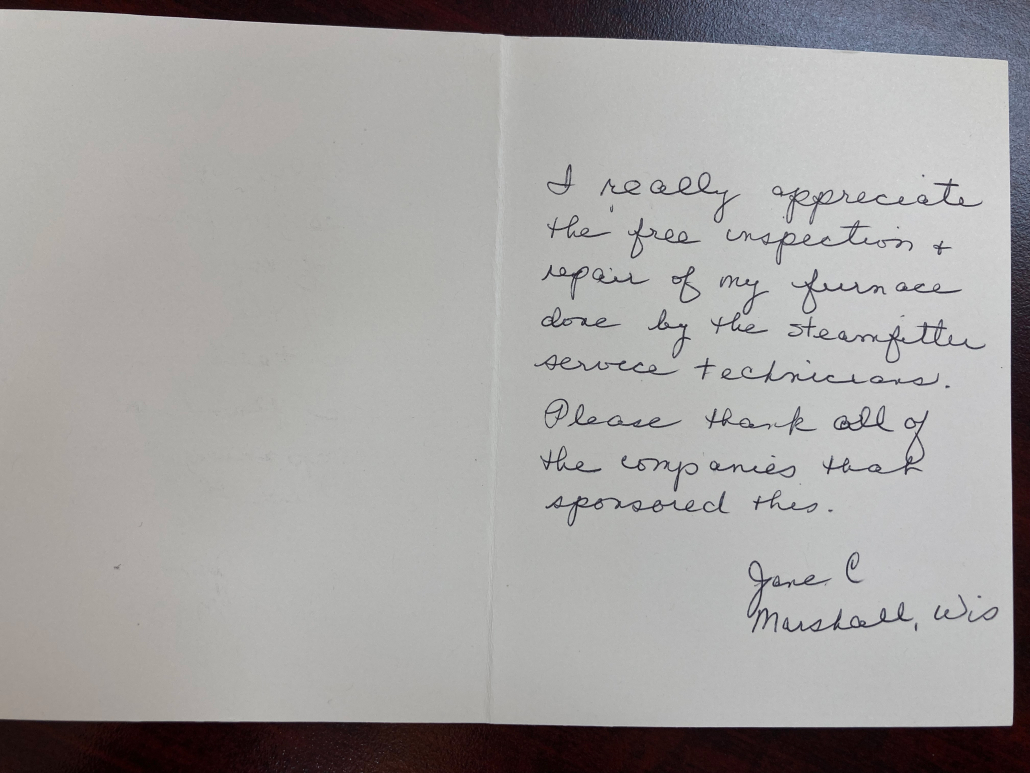 I really appreciate
the free inspection +
repair of my furnace
done by the steamfitter
service technicians.
Please thank all of
the companies that
sponsored this.
Jane C
Marshall, Wis